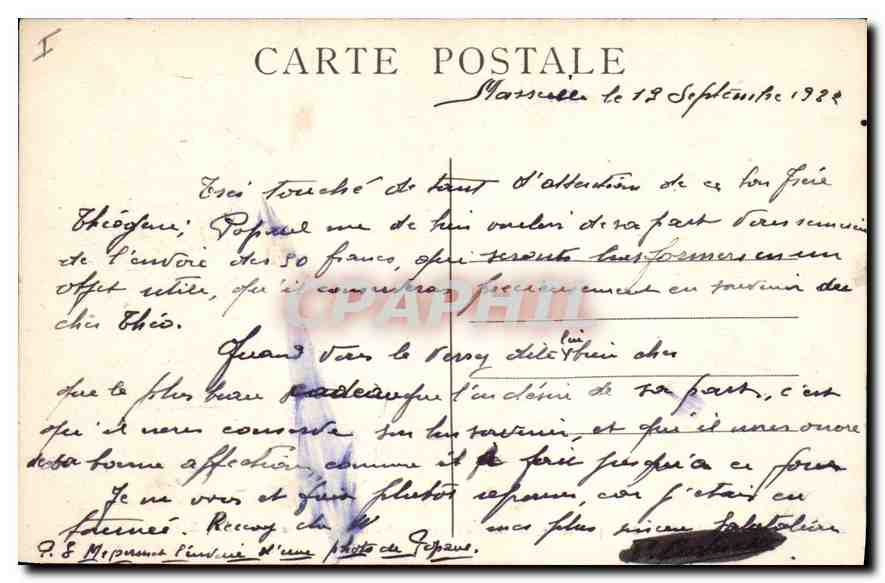 I
CARTE POSTALE
Marseille le 19 Septembre 192
Très touché de tant d'affection de ce bon frère
Théogène; Popaul me de bien vouloir de sa part vous remercier
de l'envoie des 50 francs, qui seront transformers en un
objet utile, qu'il conservera precieusement en souvenir du
cher Théo.
Quand vous le verrez dite lui bien cher
que le plus beau cadeau que l'on désire de sa part, c'est
qu'il nous conserve son bon souvenir, et qu'il nous
de sa bonne affection, comme il fait jusqu'a ce jour
Je ne vous et fais plutôt car j'étais en
tournée. mes plus sincère Salutation
P.S Me permet l'envoie d'une photo de Popaul.
CPAPHIL